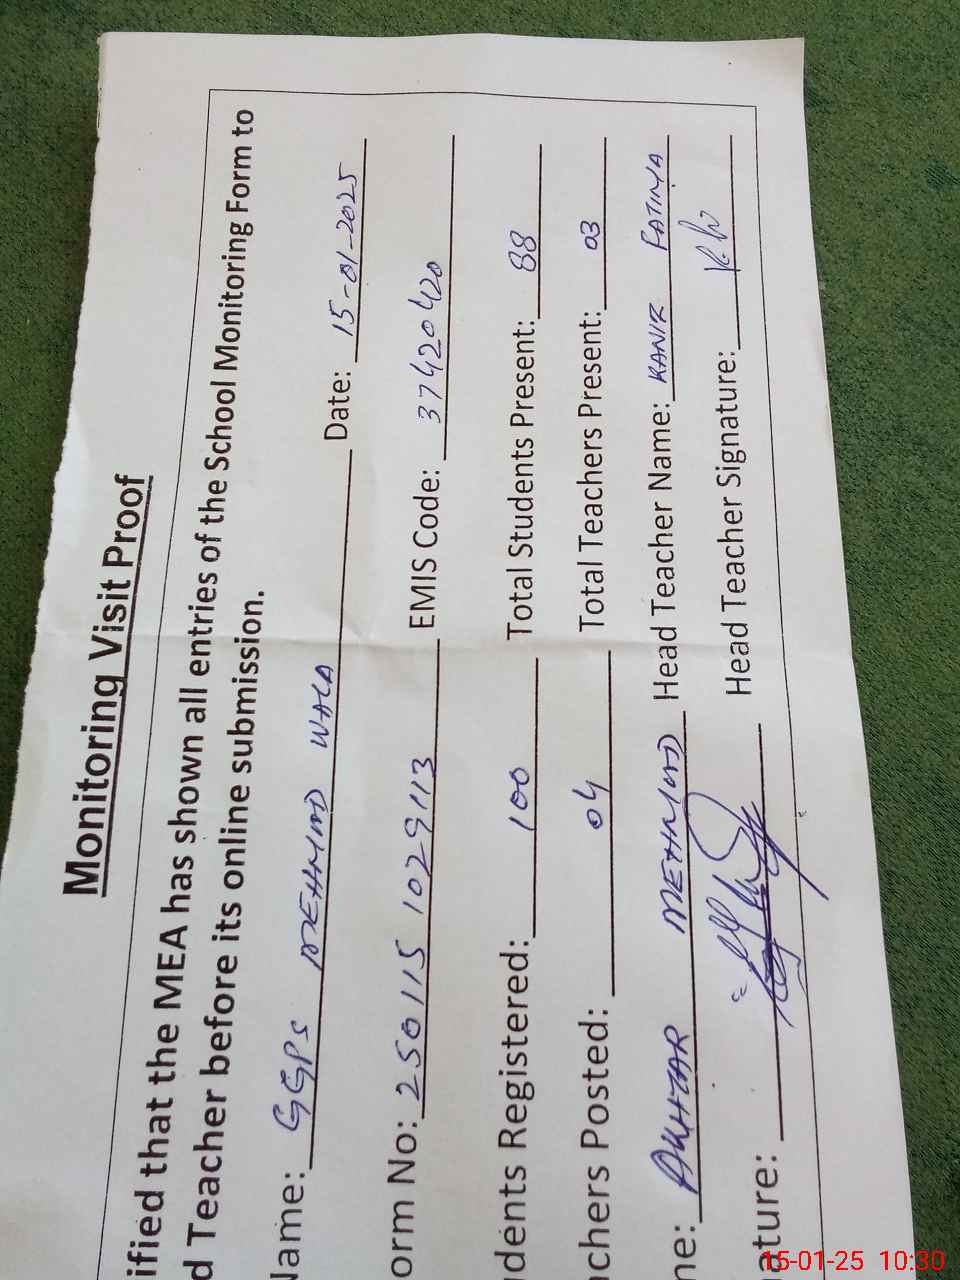 Monitoring Visit Proof
ified that the MEA has shown all entries of the School Monitoring Form to
d Teacher before its online submission.
Name: GGPS MEHMOOD WALA Date: 15-01-2025
orm No: 250115 1029113 EMIS Code: 37420420
udents Registered: 100 Total Students Present: 88
chers Posted: 04 Total Teachers Present: 03
me: AKHTAR MEHMOOD Head Teacher Name: KANIZ FATIMA
ature: Head Teacher Signature:
15-01-25 10:30